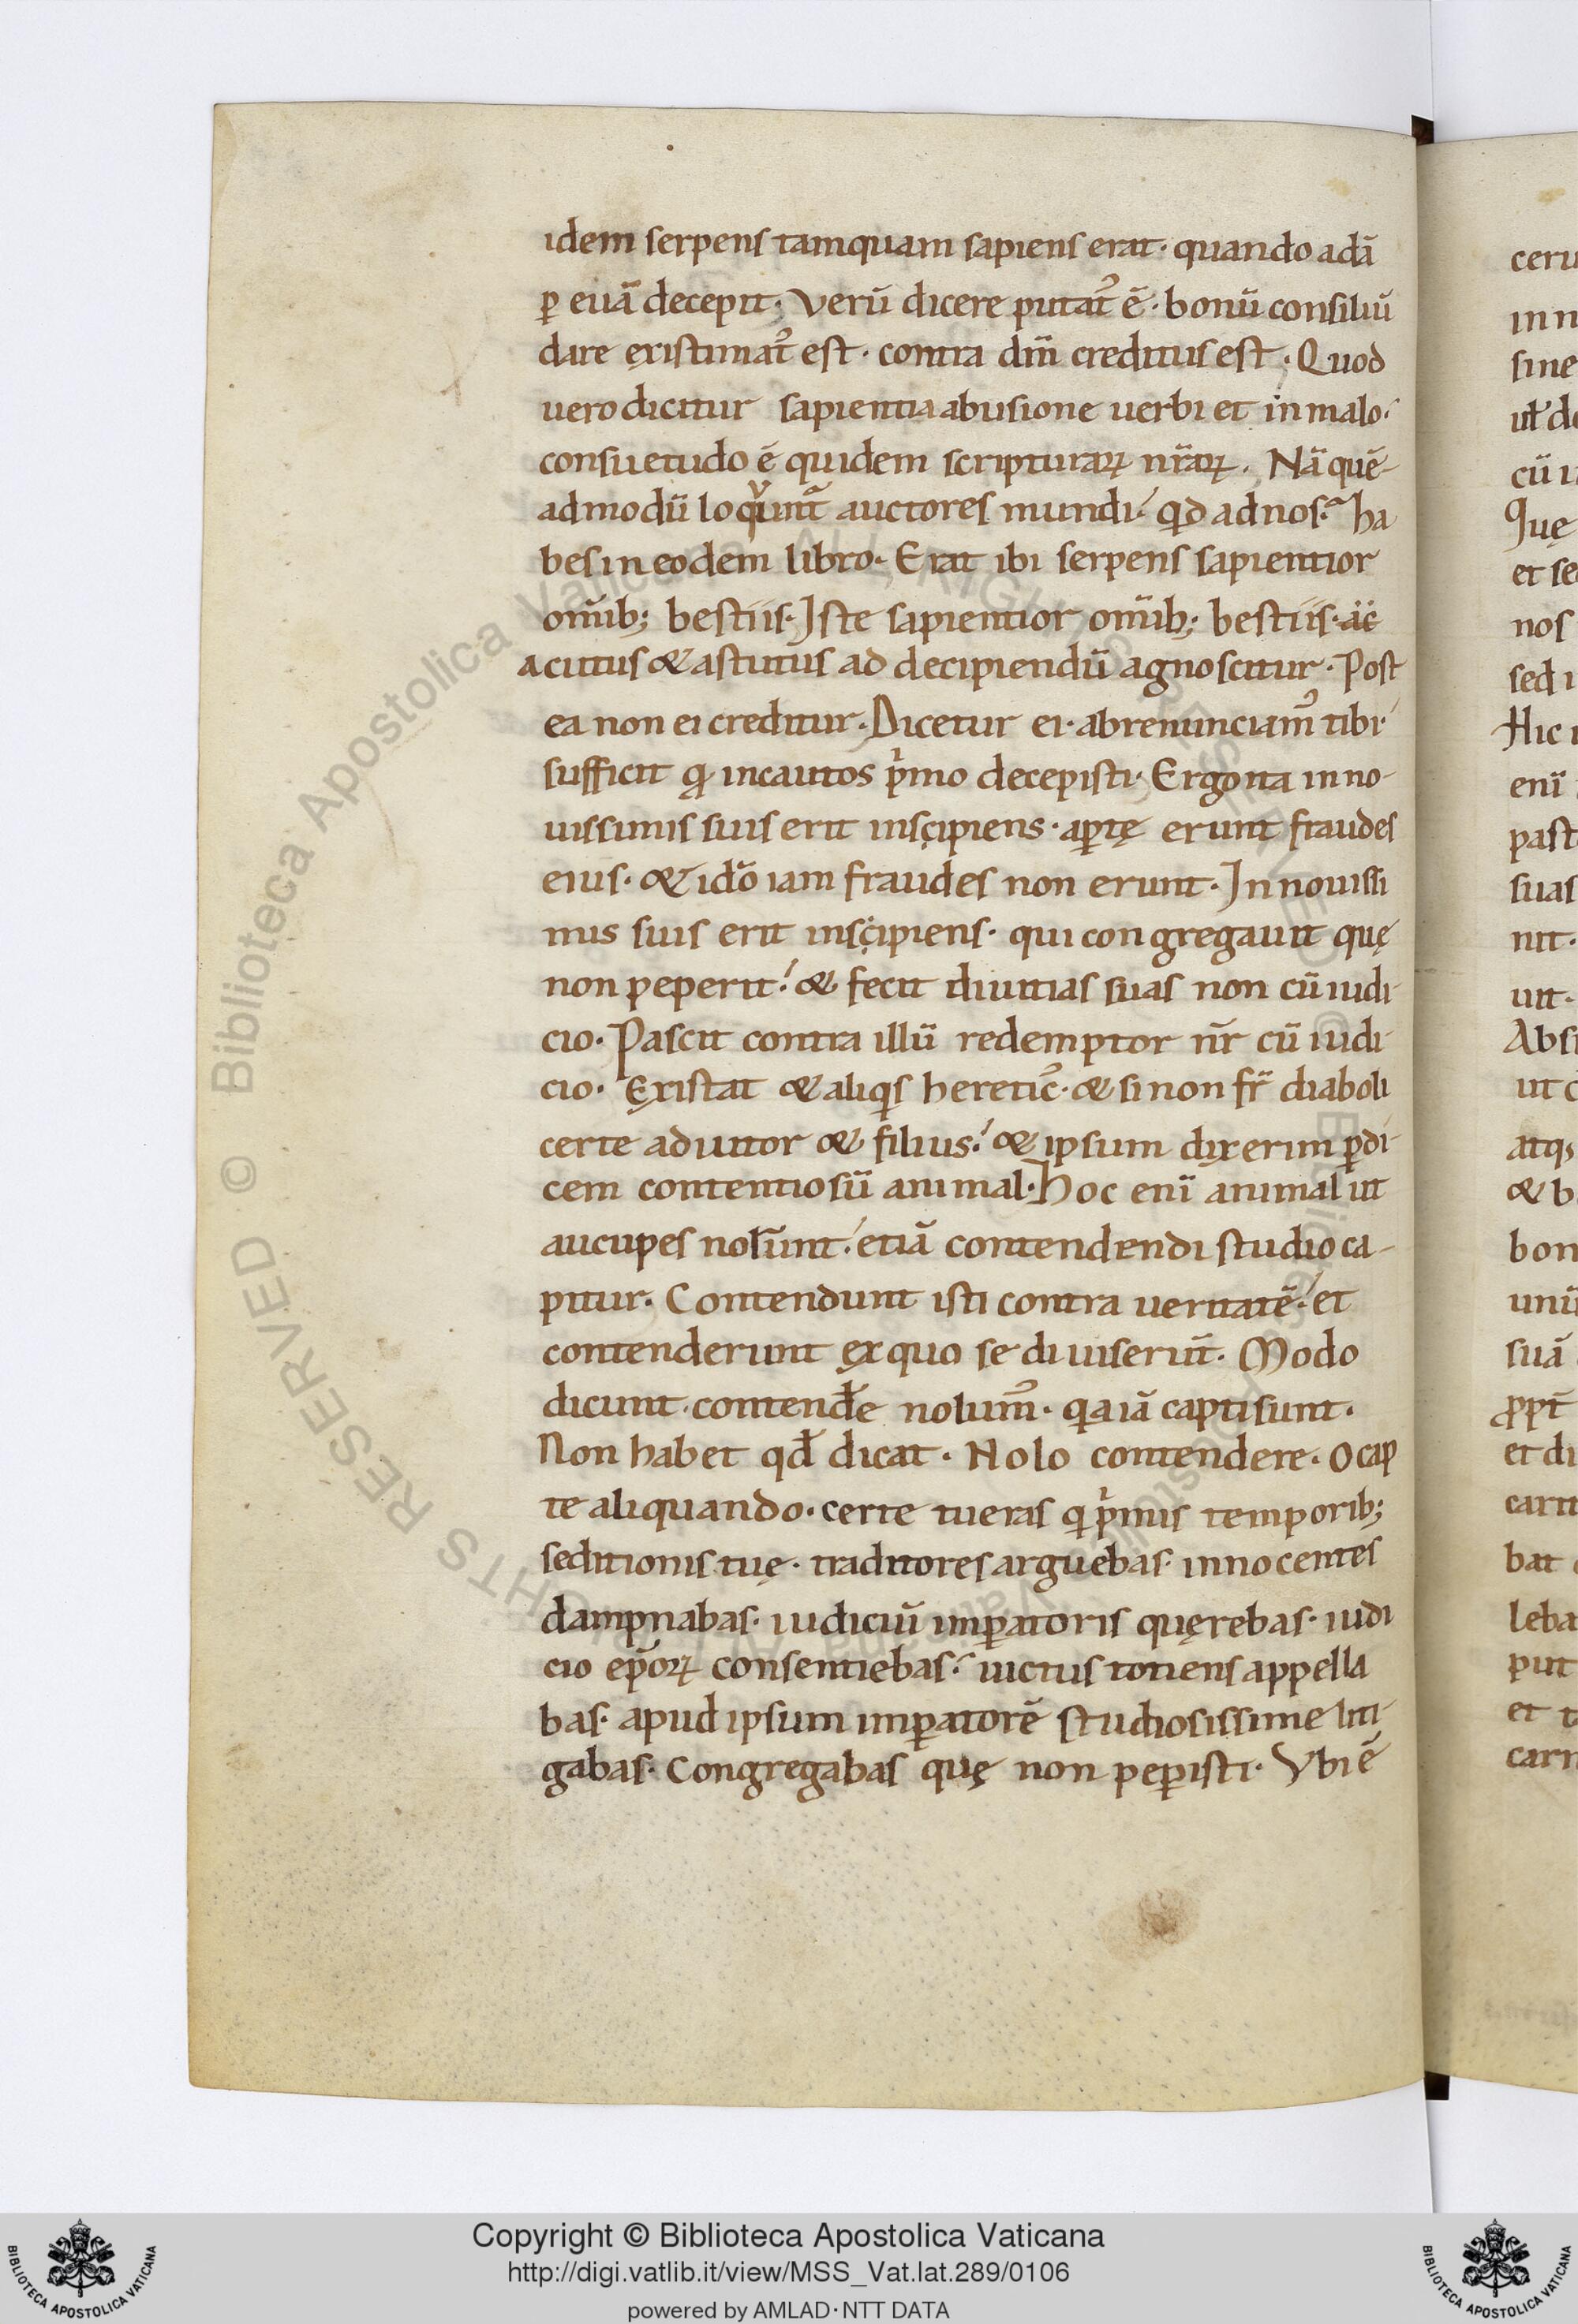 idem serpens tamquam sapiens erat· quando adā
ꝑ euā decepit· Verū dicere putat᷒ ē· bonū consiliū
dare existimat᷒ est· contra dn̄m creditus est· Quod
uero dicitur sapientia abusione uerbi et in malo·
consuetudo ē quidem scripturaꝝ nr̄aꝝ. Nā quē-
admodū loquunt̄ auctores mundi· qd ad nos? ha
bes in eodem libro· Erat ibi serpens sapientior
om̄ib; bestiis· Iste sapientior om̄ib; bestiis· ac
acutus & astutus ad decipiendū agnoscitur· Post
ea non ei creditur· Dicetur ei· abrenunciam᷒ tibi·
sufficit ꝙ incautos pͥmo decepisti· Ergo ita in no-
uissimis suis erit inscipiens· aꝑtę erunt fraudes
eius· & idō iam fraudes non erunt· In nouissi
mis suis erit inscipiens· qui congregauit quę
non peperit· & fecit diuitias suas non cū iudi
cio· Pascit contra illū redemptor nr̄ cū iudi
cio· Existat & aliqis heretic᷒· & si non fr̄ diaboli
certe adiutor & filius· & ipsum dixerim ꝑdi
cem contentiosū animal· Hoc enī animal ut
aucupes nolūnt· etiā contendendi studio ca-
pitur· Contendunt isti contra ueritatē· et
contenderunt ex quo se diuiserunt̄· Modo
dicunt· contend̄e nolum᷒· qa iā capti sunt·
Non habet qđ dicat· Nolo contendere· O cap
te aliquando· certe tu eras q pͥmis temporib;
seditionis tuę· traditores arguebas· innocentes
dampnabas· iudiciū imꝑatoris quęrebas· iudi
cio ep̄oꝝ consentiebas· uictus totiens appella
bas· apud ipsum imꝑatorē studiosissime liti-
gabas· Congregabas quę non peꝑisti· Vbi ē
ceru
in n
sine
cū
Quę
et se
nos
sed i
Hic
enī
past
suas
nit·
uit·
Absi
ut
atq;
& b
bon
unū
suā
et di
carit
bat
leba
put
et t
carn
© Biblioteca Apostolica Vaticana ALL RIGHTS RESERVED
Copyright © Biblioteca Apostolica Vaticana
http://digi.vatlib.it/view/MSS_Vat.lat.289/0106
powered by AMLAD·NTT DATA
BIBLIOTECA APOSTOLICA VATICANA
BIBLIOTECA APOSTOLICA VATICANA